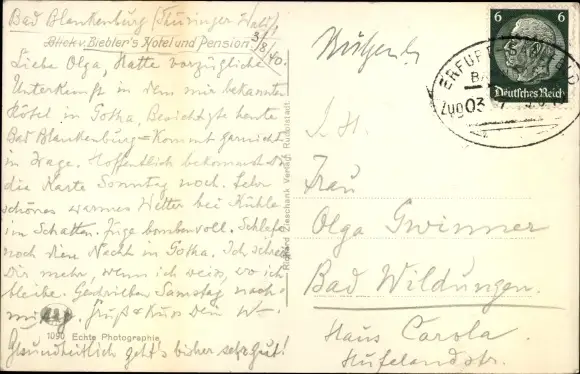 Bad Blankenburg (Thüringer Wald)
Blick v. Biebler's Hotel und Pension
3/8/40.
Liebe Olga, Hatte vorzügliche
Unterkunft in dem mir bekannten
Hotel in Gotha. Besichtigte heute
Bad Blankenburg = Kommt garnicht
in Frage. Hoffentlich bekommst Du
die Karte Sonntag noch. Sehr
schönes warmes Wetter bei Kühle
im Schatten. Züge bombenvoll. Schlafe
noch diese Nacht in Gotha. Ich schreibe
Dir mehr, wenn ich weiss, wo ich
bleibe. Geschrieben Samstag nach-
mittag. Gruß + Kuss Dein W—
1090 Echte Photographie
Gesundheitlich geht's bisher sehr gut!
Richard Zieschank Verlag Rudolstadt
6 6
Deutsches Reich
ERFURT
Zug 03
I. H.
Frau
Olga Gwinner
Bad Wildungen.
Haus Carola.
Hufelandstr.